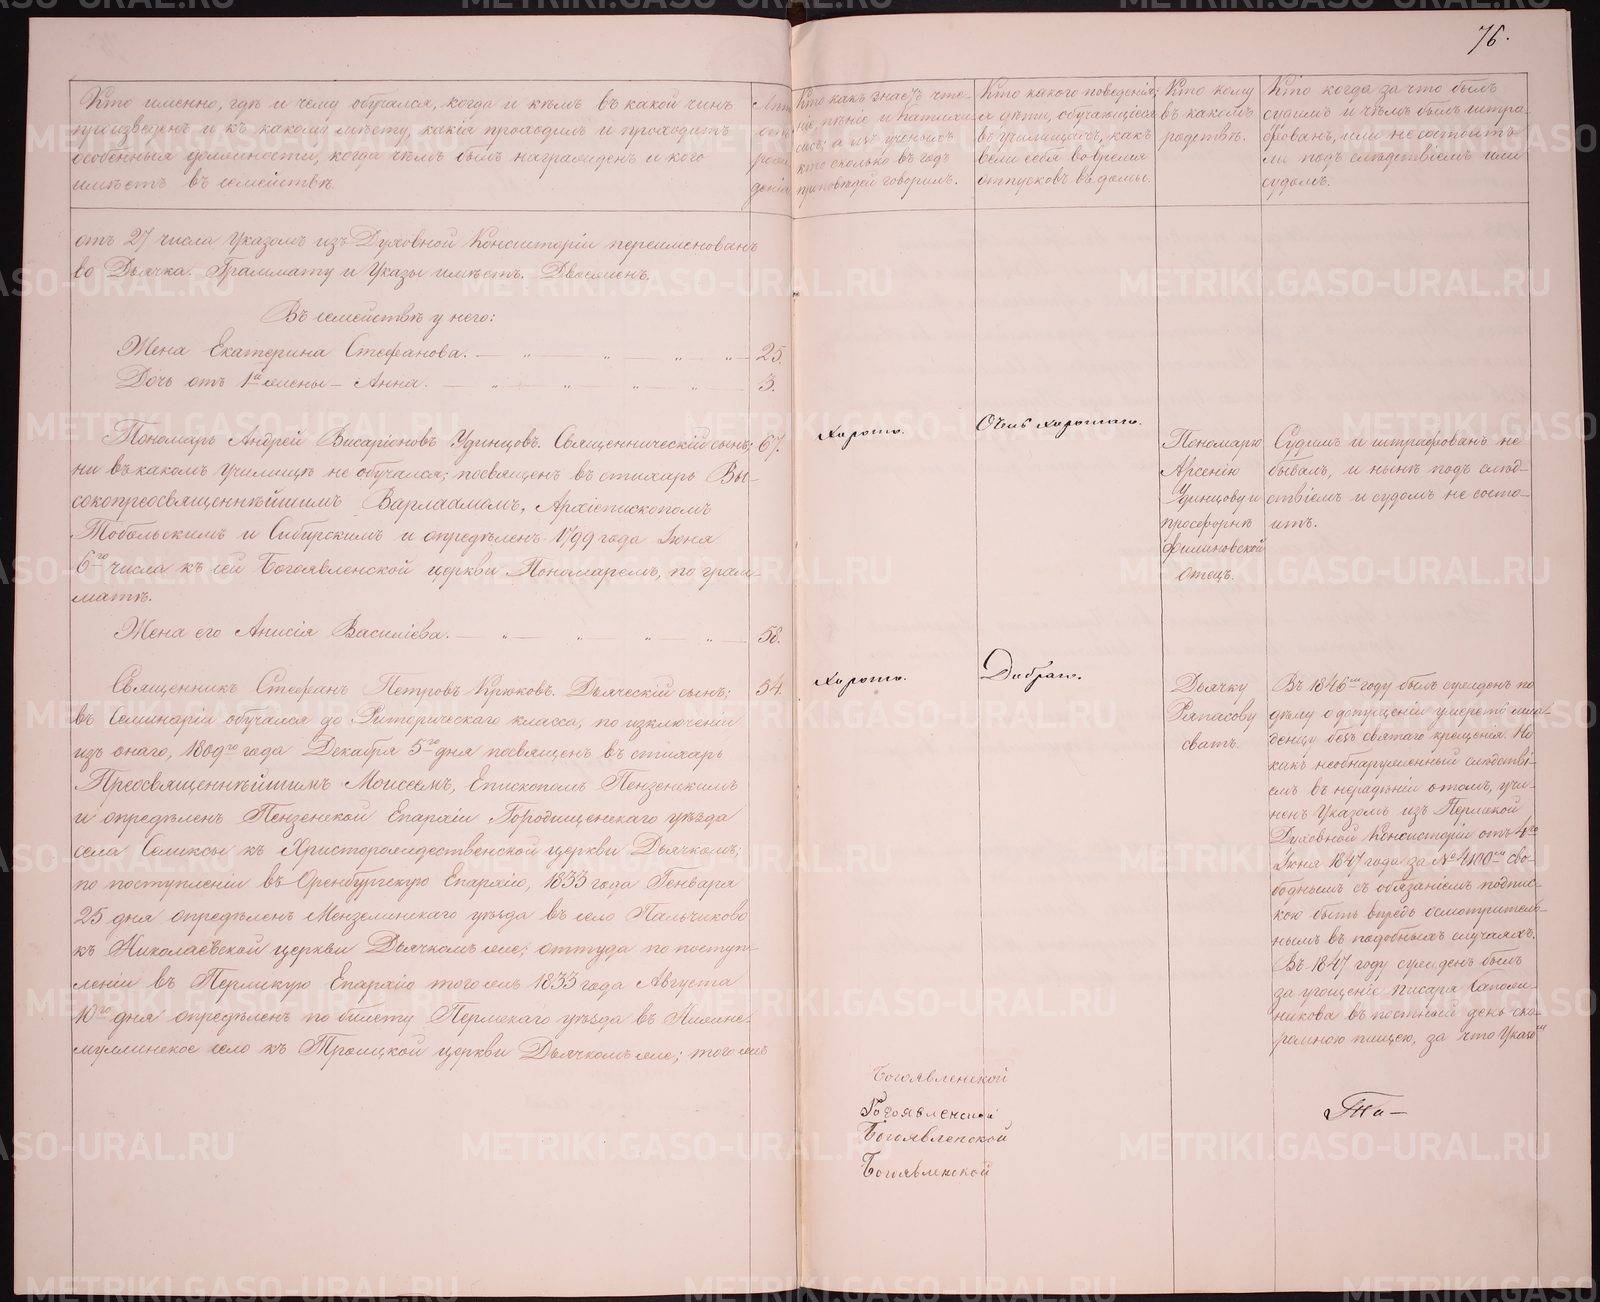 76.
Кто именно, где и чему обучался, когда и кѣмъ въ какой чинъ
произведенъ и къ какому мѣсту, какія проходилъ и проходитъ
особенныя должности, когда чѣмъ былъ награжденъ и кого
имѣетъ въ семействѣ.
Лѣта
отъ
рож
денія
Кто какъ знаетъ чте-
ніе пѣніе и катихи-
сисъ; а изъ ученыхъ
кто сколько въ годъ
проповѣдей говорилъ.
Кто какого поведенія;
а дѣти, обучающіеся
въ училищахъ, какъ
вели себя во время
отпусковъ въ домы.
Кто кому
въ какомъ
родствѣ.
Кто когда за что былъ
судимъ и чѣмъ былъ штра-
фованъ, или не состоитъ
ли подъ слѣдствіемъ или
судомъ.
отъ 27 числа Указомъ изъ Духовной Консисторіи переименованъ
во Дьячка. Граммату и Указы имѣетъ. Двоеженъ.
Въ семействѣ у него:
Жена Екатерина Стефанова. — „ — „ — „ „ — 25.
Дочь отъ 1й жены — Анна. — „ — „ — „ — „ — 3.
Пономарь Андрей Висаріоновъ Удинцовъ. Священническій сынъ; 67.
ни въ какомъ училищѣ не обучался; посвященъ въ стихарь Вы-
сокопреосвященнѣйшимъ Варлаамомъ, Архіепископомъ
Тобольскимъ и Сибирскимъ и опредѣленъ 1799 года Іюня
6го числа къ сей Богоявленской церкви Пономаремъ, по грам-
матѣ.
Жена его Анисія Василіева. — „ — „ — „ — „ — 58.
Хорошо.
Очень хорошаго.
Пономарю
Арсенію
Удинцову и
просфорнѣ
Филиновской
отецъ.
Судимъ и штрафованъ не
бывалъ, и нынѣ подъ слѣд-
ствіемъ и судомъ не состо-
итъ.
Священникъ Стефанъ Петровъ Крюковъ. Дьяческій сынъ; 54.
въ Семинаріи обучался до Риторическаго класса, по изключеніи
изъ онаго, 1809го года Декабря 5го дня посвященъ въ стихарь
Преосвященнѣйшимъ Моисеемъ, Епископомъ Пензенскимъ
и опредѣленъ Пензенской Епархіи Городищенскаго уѣзда
села Селиксы къ Христорождественской церкви Дьячкомъ;
по поступленіи въ Оренбургскую Епархію, 1833 года Генваря
25 дня опредѣленъ Мензелинскаго уѣзда въ село Пальчиково
къ Николаевской церкви Дьячкомъ же; оттуда по поступ-
леніи въ Пермскую Епархію тогожъ 1833 года Августа
10го дня опредѣленъ по билету Пермскаго уѣзда въ Нижне-
муллинское село къ Троицкой церкви Дьячкомъ же; тогожъ
Хорошо.
Добраго.
Дьячку
Ряпасову
сватъ.
Въ 1846мъ году былъ сужденъ по
дѣлу о допущеніи умереть мла-
денцу безъ святаго крещенія. Но
какъ необнаруженный слѣдстві-
емъ въ нерадѣніи о томъ, учи-
ненъ Указомъ изъ Пермской
Духовной Консисторіи отъ 4го
Іюня 1847 года за № 4100мъ сво-
боднымъ съ обязаніемъ подпис-
кою быть впредь осмотритель-
нымъ въ подобныхъ случаяхъ.
Въ 1847 году сужденъ былъ
за угощеніе писаря Сапож-
никова въ постный день ско-
ромною пищею, за что Указомъ
Богоявленской
Богоявленской
Богоявленской
Богоявленской